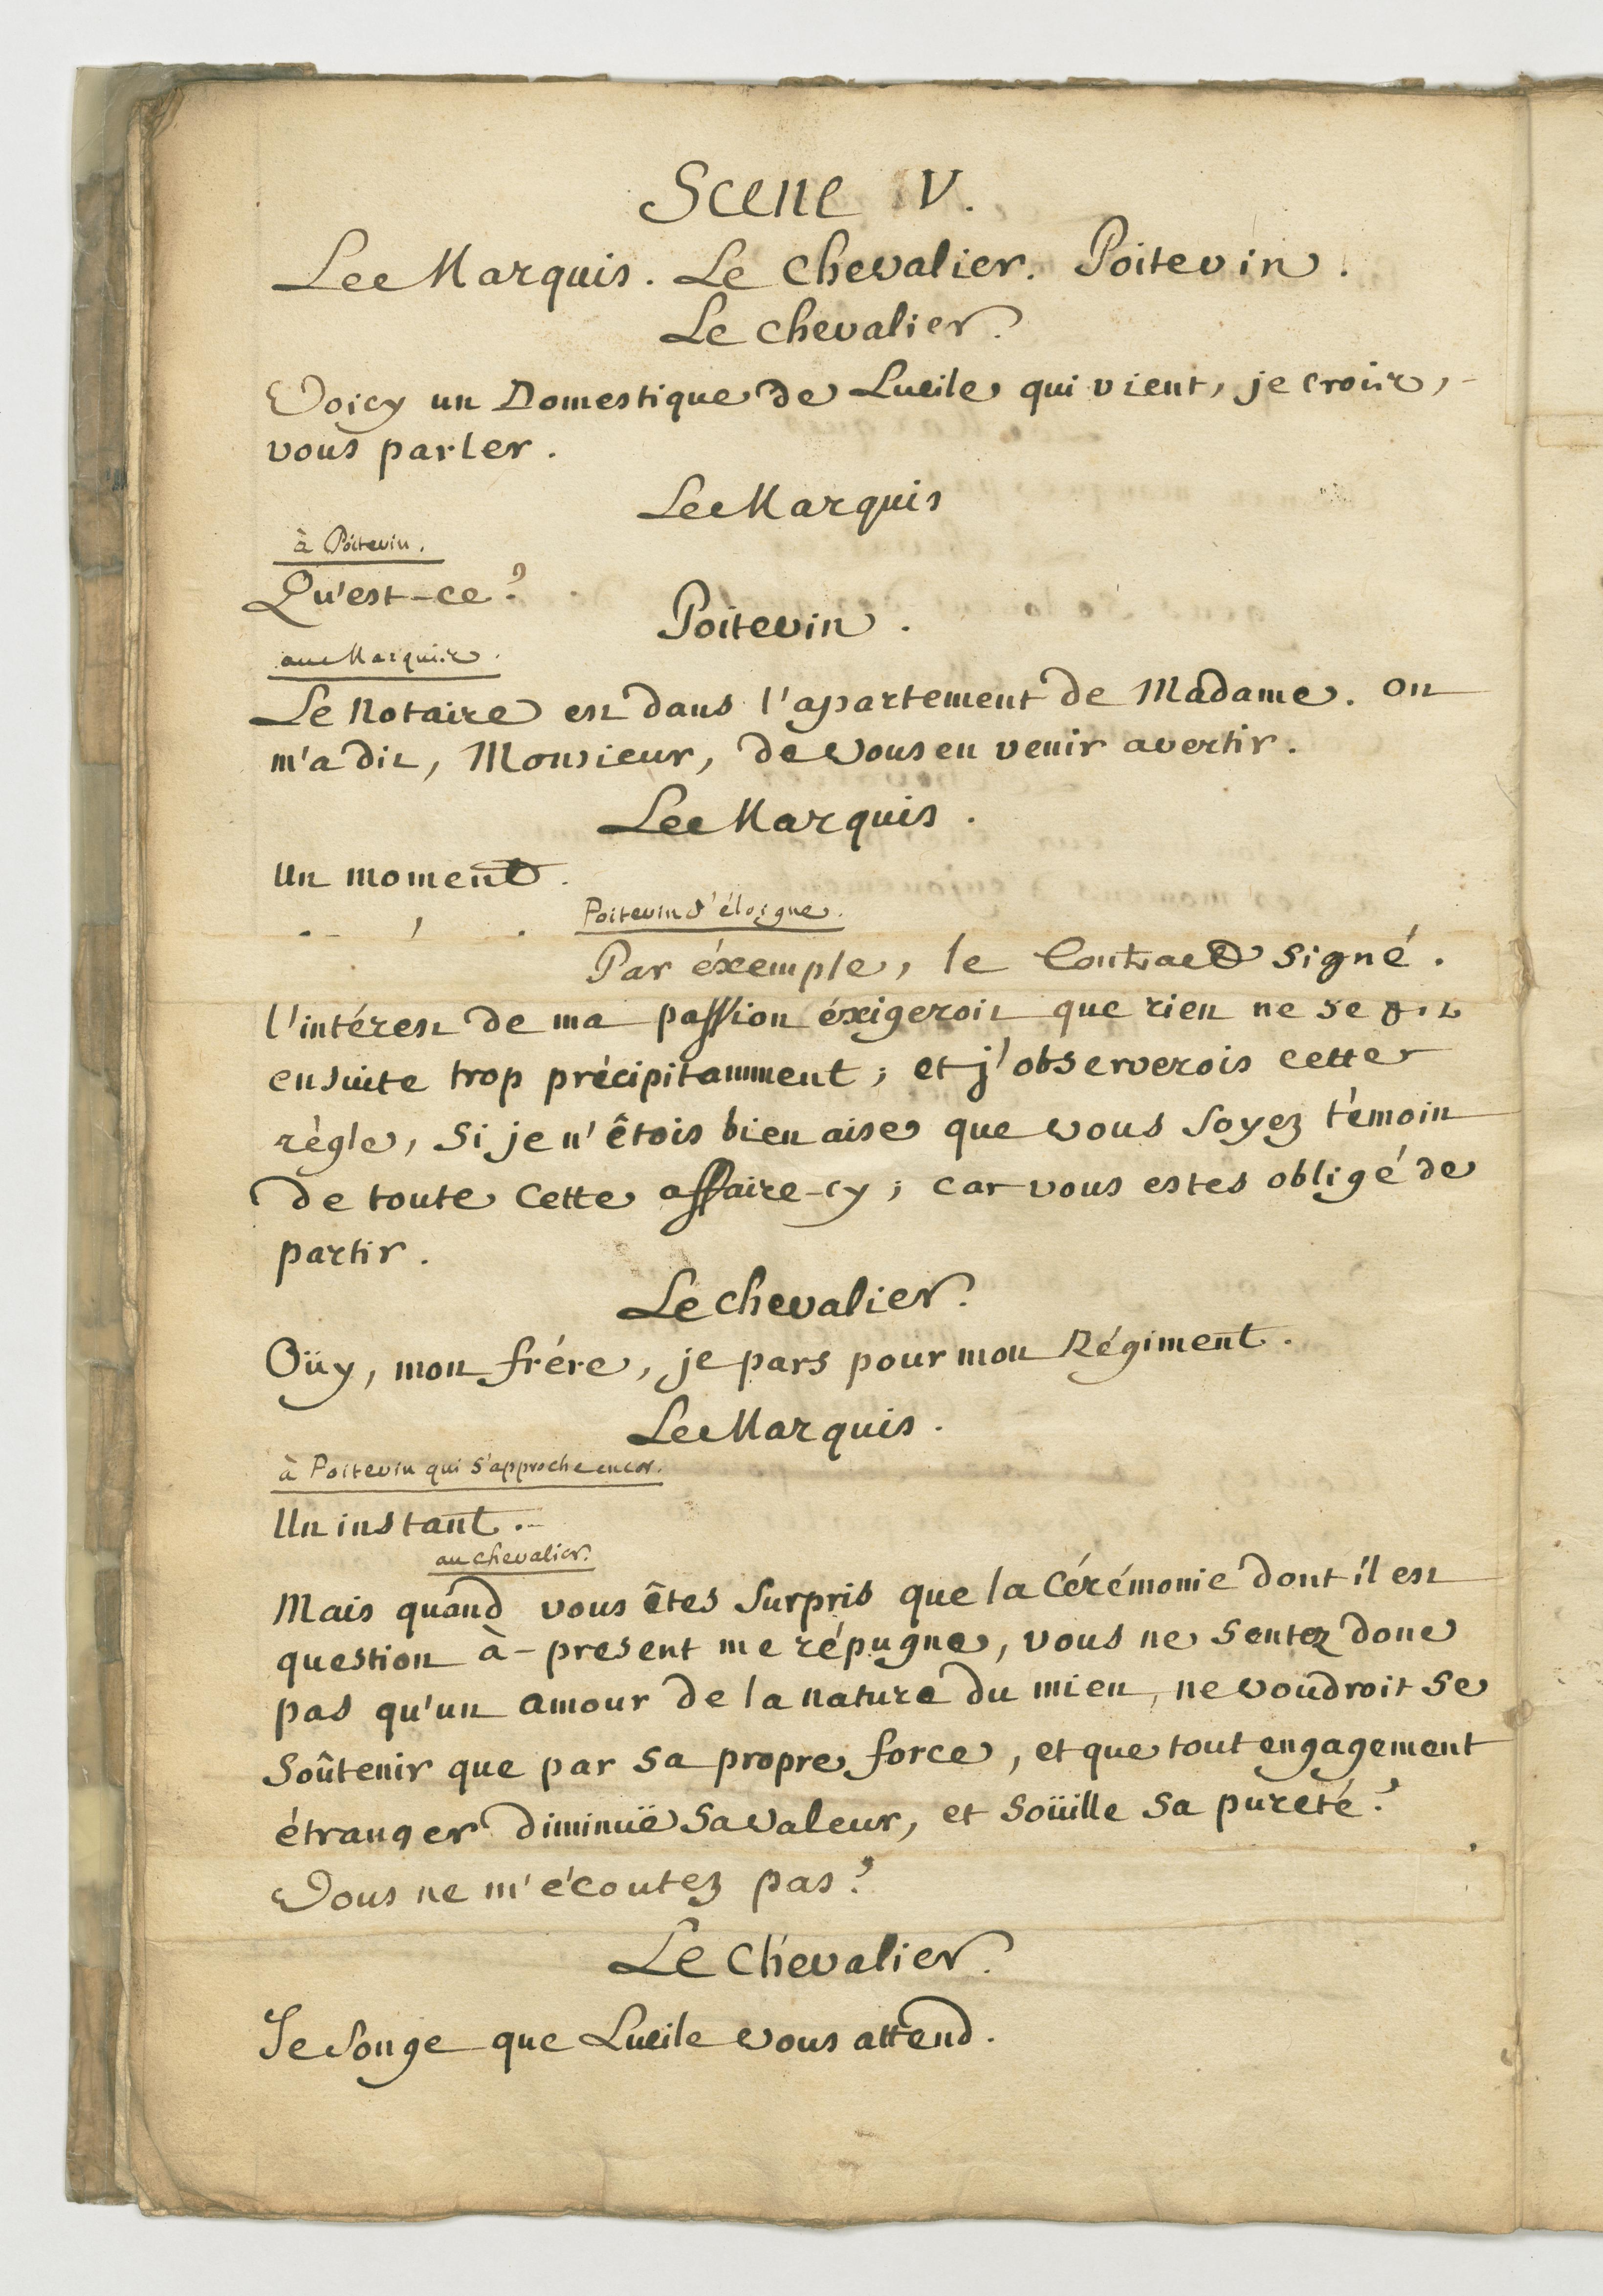 Scene V.
Le Marquis. Le Chevalier. Poitevin.
Le Chevalier.
Voicy un Domestique de Lucile qui vient, je crois,
vous parler.
Le Marquis
à Poitevin.
Qu'est-ce?
Poitevin.
au Marquis.
Le Notaire est dans l'apartement de Madame. on
m'a dit, Monsieur, de vous en venir avertir.
Le Marquis.
Un moment.
Poitevin s'éloigne.
Par éxemple, le Contract signé.
l'intérest de ma passion éxigeroit que rien ne se fit
ensuite trop précipitamment; et j'observerois cette
règle, si je n'êtois bien aise que vous soyez témoin
de toute cette affaire-cy; car vous estes obligé de
partir.
Le Chevalier.
Oüy, mon frére, je pars pour mon Régiment.
Le Marquis.
à Poitevin qui s'approche encor.
Un instant.
au Chevalier.
Mais quand vous êtes surpris que la Cérémonie dont il est
question à-present me répugne, vous ne sentez donc
pas qu'un amour de la nature du mien, ne voudroit se
soûtenir que par sa propre force, et que tout engagement
étranger diminüe sa valeur, et soüille sa pureté?
Vous ne m'écoutez pas?
Le Chevalier.
Je songe que Lucile vous attend.